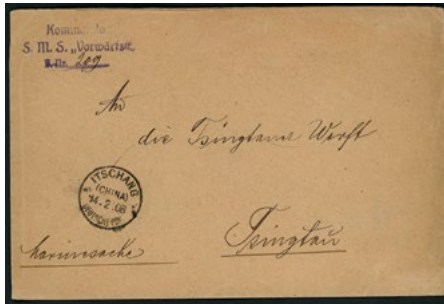 Kommando
S. M. S. „Vorwärts“.
B. Nr. 209
An
die Tsingtauer Werft
ITSCHANG
(CHINA)
14.2.08
Tsingtau
Marinesache